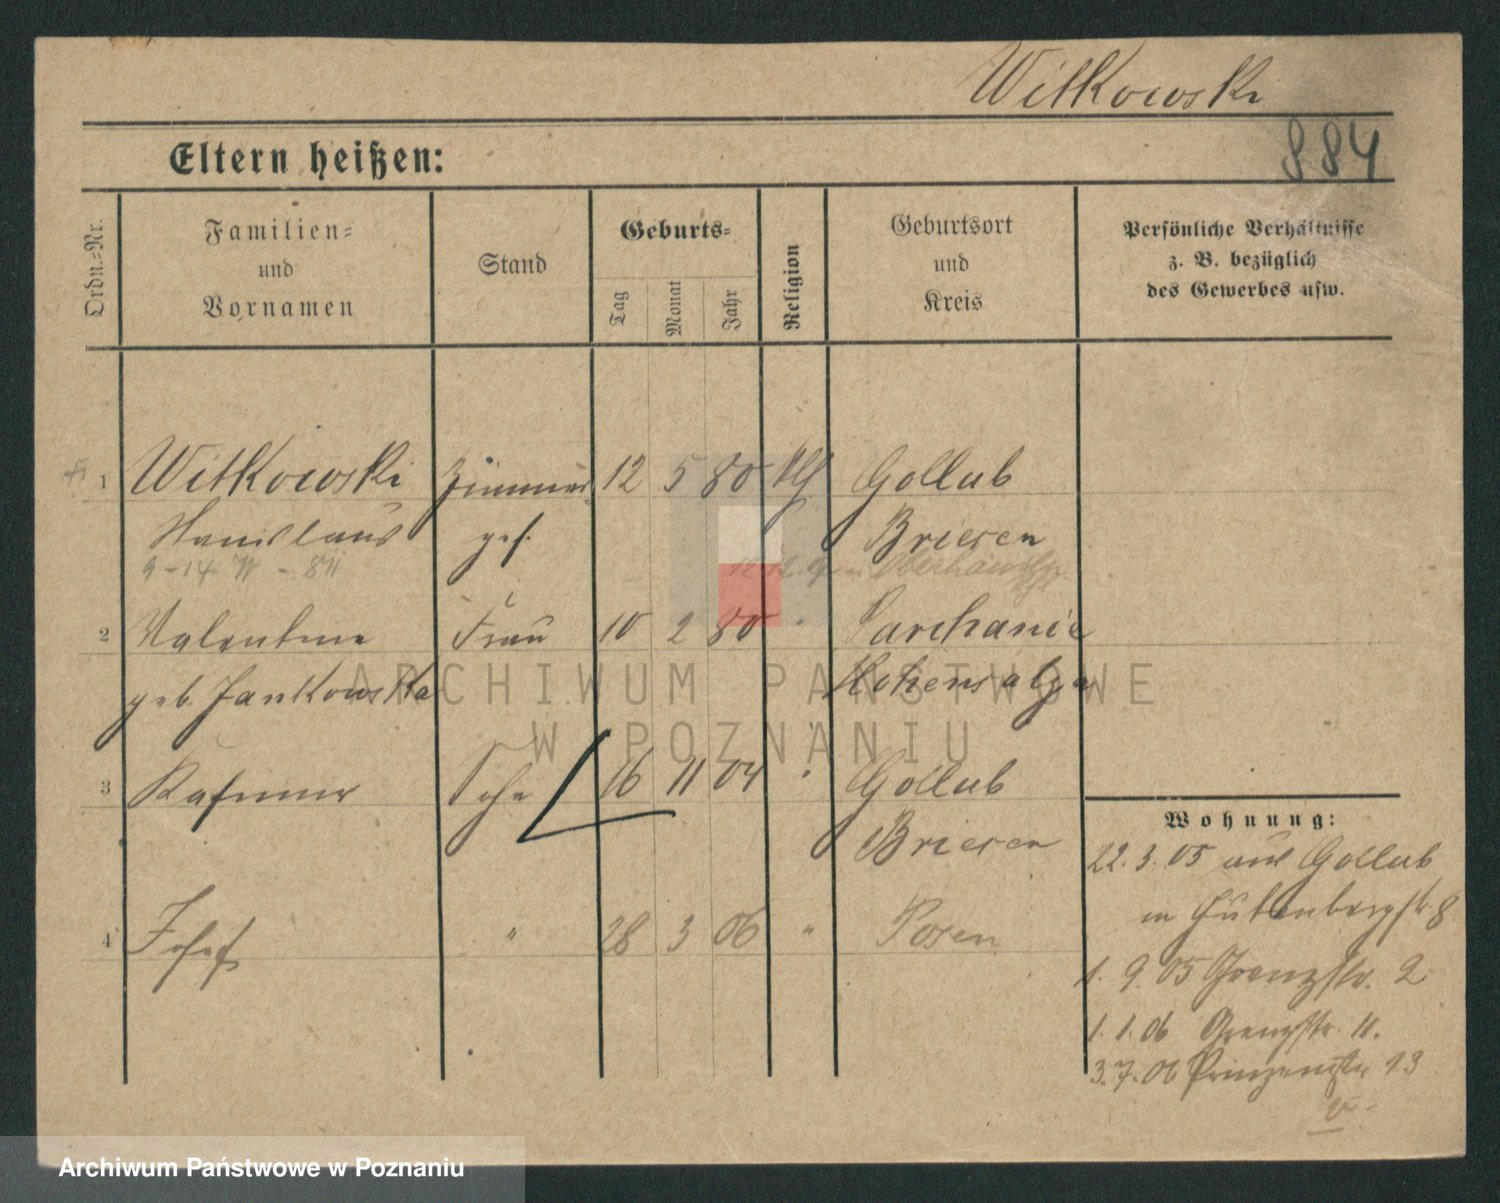 Witkowski
884
Eltern heißen:
Ordn.-Nr.
Familien-
und
Vornamen
Stand
Geburts-
Tag
Monat
Jahr
Religion
Geburtsort
und
Kreis
Persönliche Verhältnisse
z. B. bezüglich
des Gewerbes usw.
1 Witkowski Zimmer 12 5 80 Gollub
Stanislaus ges. Briesen
2 Valentine Frau 10 2 80 "
geb. Jankowska Hohensalza
3 Kasimir Sohn 16 11 04 " Gollub
Briesen
4 Josef " 28 3 06 " Posen
Wohnung:
22.3.05 aus Gollub
in Gutenbergstr 8
1.9.05 Grenzstr. 2
1.1.06 Grenzstr. 11.
3.7.06 Prinzenstr 13
ARCHIWUM PAŃSTWOWE
W POZNANIU
Archiwum Państwowe w Poznaniu